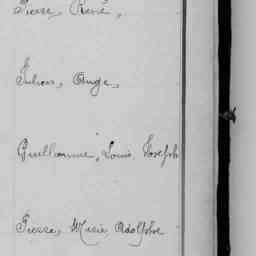 Pierre, René,
Julien, Ange,
Guillaume, Louis, Joseph
Pierre, Marie, Adolphe